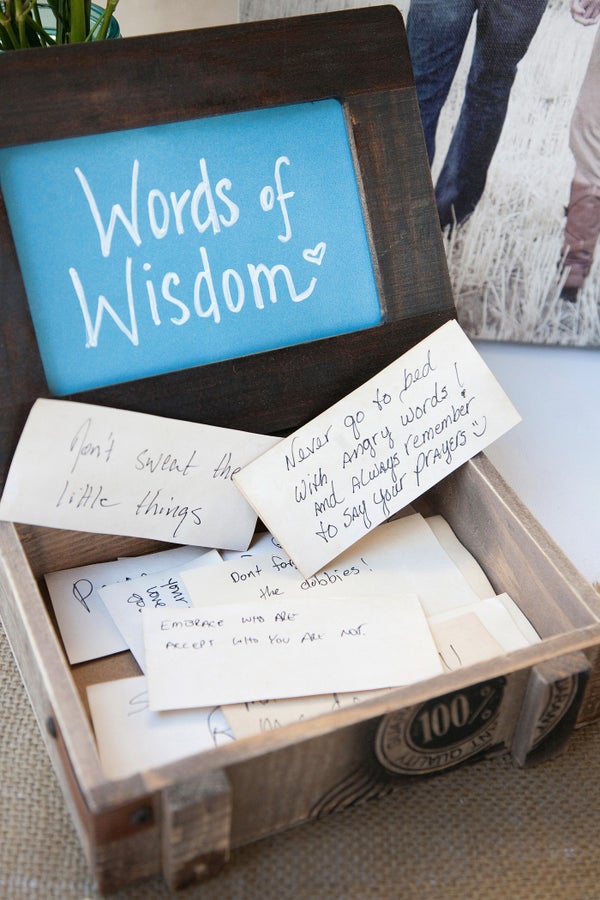 Words of
Wisdom
Don't sweat the
little things
Never go to bed
with angry words!
and always remember
to say your prayers
Dont
the dobbies!
love
your
EMBRACE WHO ARE
ACCEPT WHO YOU ARE NOT.
100%
QUALITY